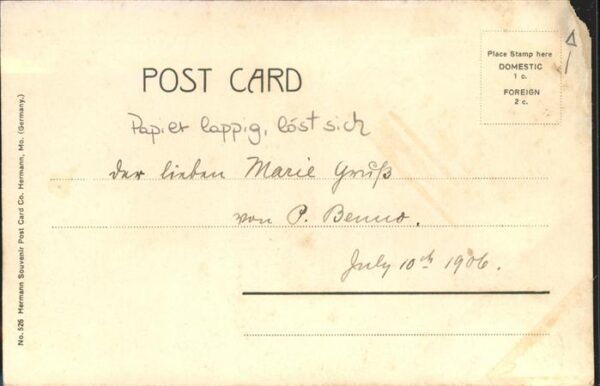 Place Stamp here
DOMESTIC
1 c.
FOREIGN
2 c.
POST CARD
Papier lappig, löst sich
der lieben Marie Gruß
von P. Benno.
July 10th 1906.
No. 525 Hermann Souvenir Post Card Co. Hermann, Mo. (Germany.)